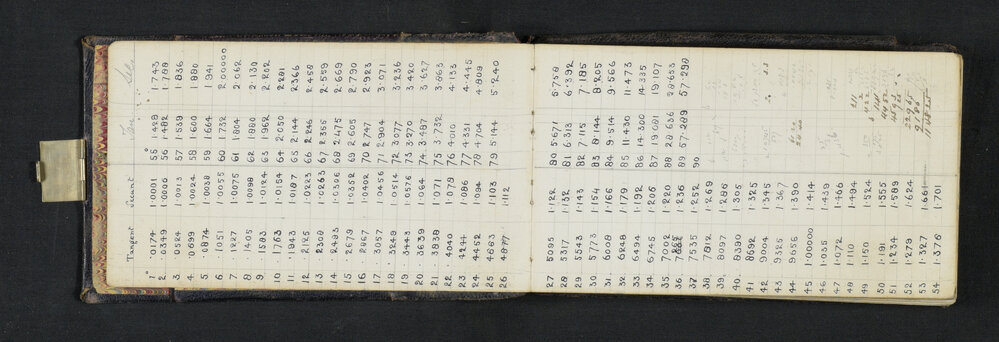 Tangent Secant Tan Sec
1° .0174 1.0001 55° 1.428 1.743
2. .0349 1.0006 56 1.482 1.788
3. .0524 1.0013 57 1.539 1.836
4. .0699 1.0024 58 1.600 1.880
5. .0874 1.0038 59 1.664 1.941
6. .1051 1.0055 60 1.732 2.00000
7. .1227 1.0075 61 1.804 2.062
8. .1405 1.0098 62 1.880 2.130
9. .1583 1.0124 63 1.962 2.202
10. .1763 1.0154 64 2.050 2.281
11. .1943 1.0187 65 2.144 2.366
12. .2125 1.0223 66 2.246 2.458
13. .2308 1.0263 67 2.355 2.559
14. .2493 1.0306 68 2.475 2.669
15. .2679 1.0352 69 2.605 2.790
16. .2867 1.0402 70 2.747 2.923
17. .3057 1.0456 71 2.904 3.071
18. .3249 1.0514 72 3.077 3.236
19. .3443 1.0576 73 3.270 3.420
20. .3639 1.064 74 3.487 3.627
21. .3838 1.071 75 3.732 3.863
22. .4040 1.078 76 4.010 4.133
23. .4244 1.086 77 4.331 4.445
24. .4452 1.094 78 4.704 4.809
25. .4663 1.103 79 5.144 5.240
26. .4877 1.112
27. .5095 1.122 80 5.671 5.758
28. .5317 1.132 81 6.313 6.392
29. .5543 1.143 82 7.115 7.185
30. .5773 1.154 83 8.144 8.205
31. .6008 1.166 84 9.514 9.566
32. .6248 1.179 85 11.430 11.473
33. .6494 1.192 86 14.300 14.335
34. .6745 1.206 87 19.081 19.107
35. .7002 1.220 88 28.636 28.653
36. 1.236 89 57.289 57.290
37. .7535 1.252 90
38. .7812 1.269
39. .8097 1.286
40. .8390 1.305
41. .8692 1.325
42. .9004 1.345
43. .9325 1.367
44. .9656 1.390
45. 1.00000 1.414
46. 1.035 1.439
47. 1.072 1.466
48. 1.110 1.494
49. 1.150 1.524
50. 1.191 1.555
51. 1.234 1.589
52. 1.279 1.624
53. 1.327 1.661
54. 1.376 1.701